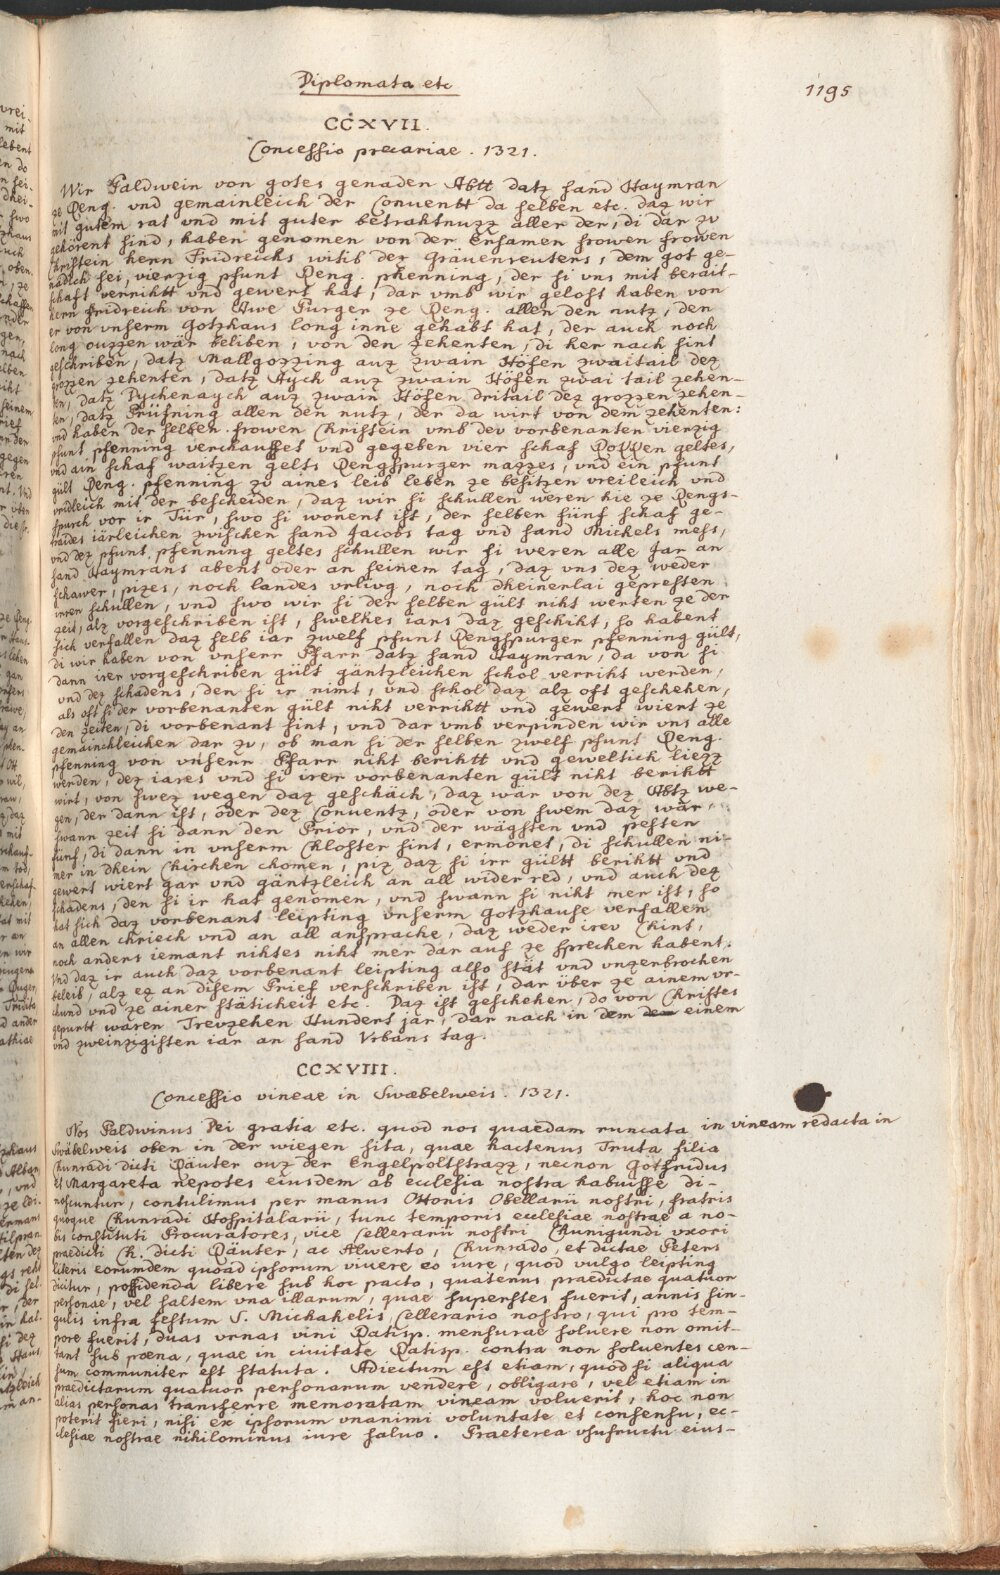 Diplomata etc
1195
CCXVII.
Concessio precariae. 1321.
Wir Paldwein von gotes genaden Abtt datz sand Haymran
ze Reng. vnd gemainleich der Conuentt da selben etc. daz wir
mit gutem rat vnd mit guter betrahtnuzz aller der, di dar zv
gehörent sind, haben genomen von der Ersamen frowen frowen
Christein hern Fridreichs witib dez Gräuenreuters, dem got ge-
nadich sei, vierzig phunt Reng. phenning, der si vns mit berait-
schaft verrihtt vnd gewert hat, dar vmb wir gelost haben von
hern Fridreich von Awe Purger ze Reng. allen den nutz, den
er von vnserm Gotzhaus long inne gehabt hat, der auch noch
long ouzzen wär beliben, von den zehenten, di her nach sint
geschriben, datz Mallgozzing auz zwain Höfen zwaitail dez
grozzen zehenten, datz Aych auz zwain Höfen zwai tail zehen-
ten, datz Puchenaych auz zwain Höfen dritail dez grozzen zehen-
ten, datz Prüfning allen den nutz, der da wirt von dem zehenten:
vnd haben der selben frowen Christein vmb dev vorbenanten vierzig
phunt phenning verchauffet vnd gegeben vier schaf Rokken geltes,
vnd ain schaf waitzen gelts Rengspurger mazzes, vnd ein phunt
gült Reng. phenning zu aines leib leben ze besitzen vreileich vnd
vridleich mit der bescheiden, daz wir si schullen weren hie ze Rengs-
purch vor ir Tür, swo si wonent ist, der selben fünf schaf ge-
traides iärleichen zwischen sand Jacobs tag vnd sand Michels mess,
vnd dez phunt phenning geltes schullen wir si weren alle Jar an
sand Haymrans abent oder an seinem tag, daz vns dez weder
schawer, pizes, noch landes vrliwg, noch dheinerlai gepresten
irren schullen, vnd swo wir si der selben gült niht werten ze der
zeit, alz vorgeschriben ist, swelhes iars daz geschiht, so habent
sich verfallen daz selb iar zwelf phunt Rengspurger phenning gült,
di wir haben von vnserr Pharr datz sand Haymran, da von si
dann irer vorgeschriben gült gäntzleichen schol verriht werden,
vnd dez schadens, den si ir nimt, vnd schol daz alz oft geschehen,
als oft si der vorbenanten gült niht verrihtt vnd gewert wiert ze
den zeiten, di vorbenant sint, vnd dar vmb verpinden wir vns alle
gemainchleichen dar zv, ob man si der selben zwelf phunt Reng.
phenning von vnserr Pharr niht berihtt vnd geweltich liezz
werden, dez iares vnd si irer vorbenanten gült niht berihtt
wirt, von swez wegen daz geschäch, daz wär von dez Abtz we-
gen, der dann ist, oder dez Conuentz, oder von swem daz wär,
swann zeit si dann den Prior, vnd der wägsten vnd pesten
fünf, di dann in vnserm Chloster sint, ermonet, di schullen ni-
mer in dhein Chirchen chomen, piz daz si irr gültt berihtt vnd
gewert wiert gar vnd gäntzleich an all wider red, vnd auch dez
schadens, den si ir hat genomen, vnd swann si niht mer ist, so
hat sich daz vorbenant leipting vnserm Gotzhause verfallen
an allen chriech vnd an all ansprache, daz weder irev Chint,
noch anders iemant nihtes niht mer dar auf ze sprechen habent.
Vnd daz ir auch daz vorbenant leipting also stät vnd vnzerbrochen
beleib, alz ez an disem Prief verschriben ist, dar über ze ainem vr-
chund vnd ze ainer stäticheit etc. Daz ist geschehen, do von Christes
gepurtt waren Trevzehen Hundert jar, dar nach in dem einem
vnd zweinzigisten iar an sand Vrbans tag.
CCXVIII.
Concessio vineae in Swaebelweis. 1321.
Nos Paldwinus Dei gratia etc. quod nos quaedam runcata in vineam redacta in
Swäbelweis oben in der wiegen sita, quae hactenus Truta filia
Chunradi dicti Räuter ouz der Engelpoltstrazz, necnon Götfridus
et Margareta nepotes eiusdem ab ecclesia nostra habuisse di-
noscuntur, contulimus per manus Ottonis Obellarii nostri, fratris
quoque Chunradi Hospitalarii, tunc temporis ecclesiae nostrae a no-
bis constituti Procuratores, vice Cellerarii nostri Chunigundi vxori
praedicti Ch. dicti Räuter, ac Alwerto, Chunrado, et dictae Peters
liberis eorumdem quoad ipsorum viuere eo iure, quod vulgo leipting
dicitur, possidenda libere sub hoc pacto, quatenus praedictae quatuor
personae, vel saltem vna illarum, quae superstes fuerit, annis sin-
gulis infra festum S. Michahelis Cellerario nostro, qui pro tem-
pore fuerit, duas vrnas vini Ratisp. mensurae soluere non omit-
tant sub poena, quae in ciuitate Ratisp. contra non soluentes cen-
sum communiter est statuta. Adiectum est etiam, quod si aliqua
praedictarum quatuor personarum vendere, obligare, vel etiam in
alias personas transferre memoratam vineam voluerit, hoc non
poterit fieri, nisi ex ipsorum vnanimi voluntate et consensu, ec-
clesiae nostrae nihilominus iure saluo. Praeterea vsufructu eius-